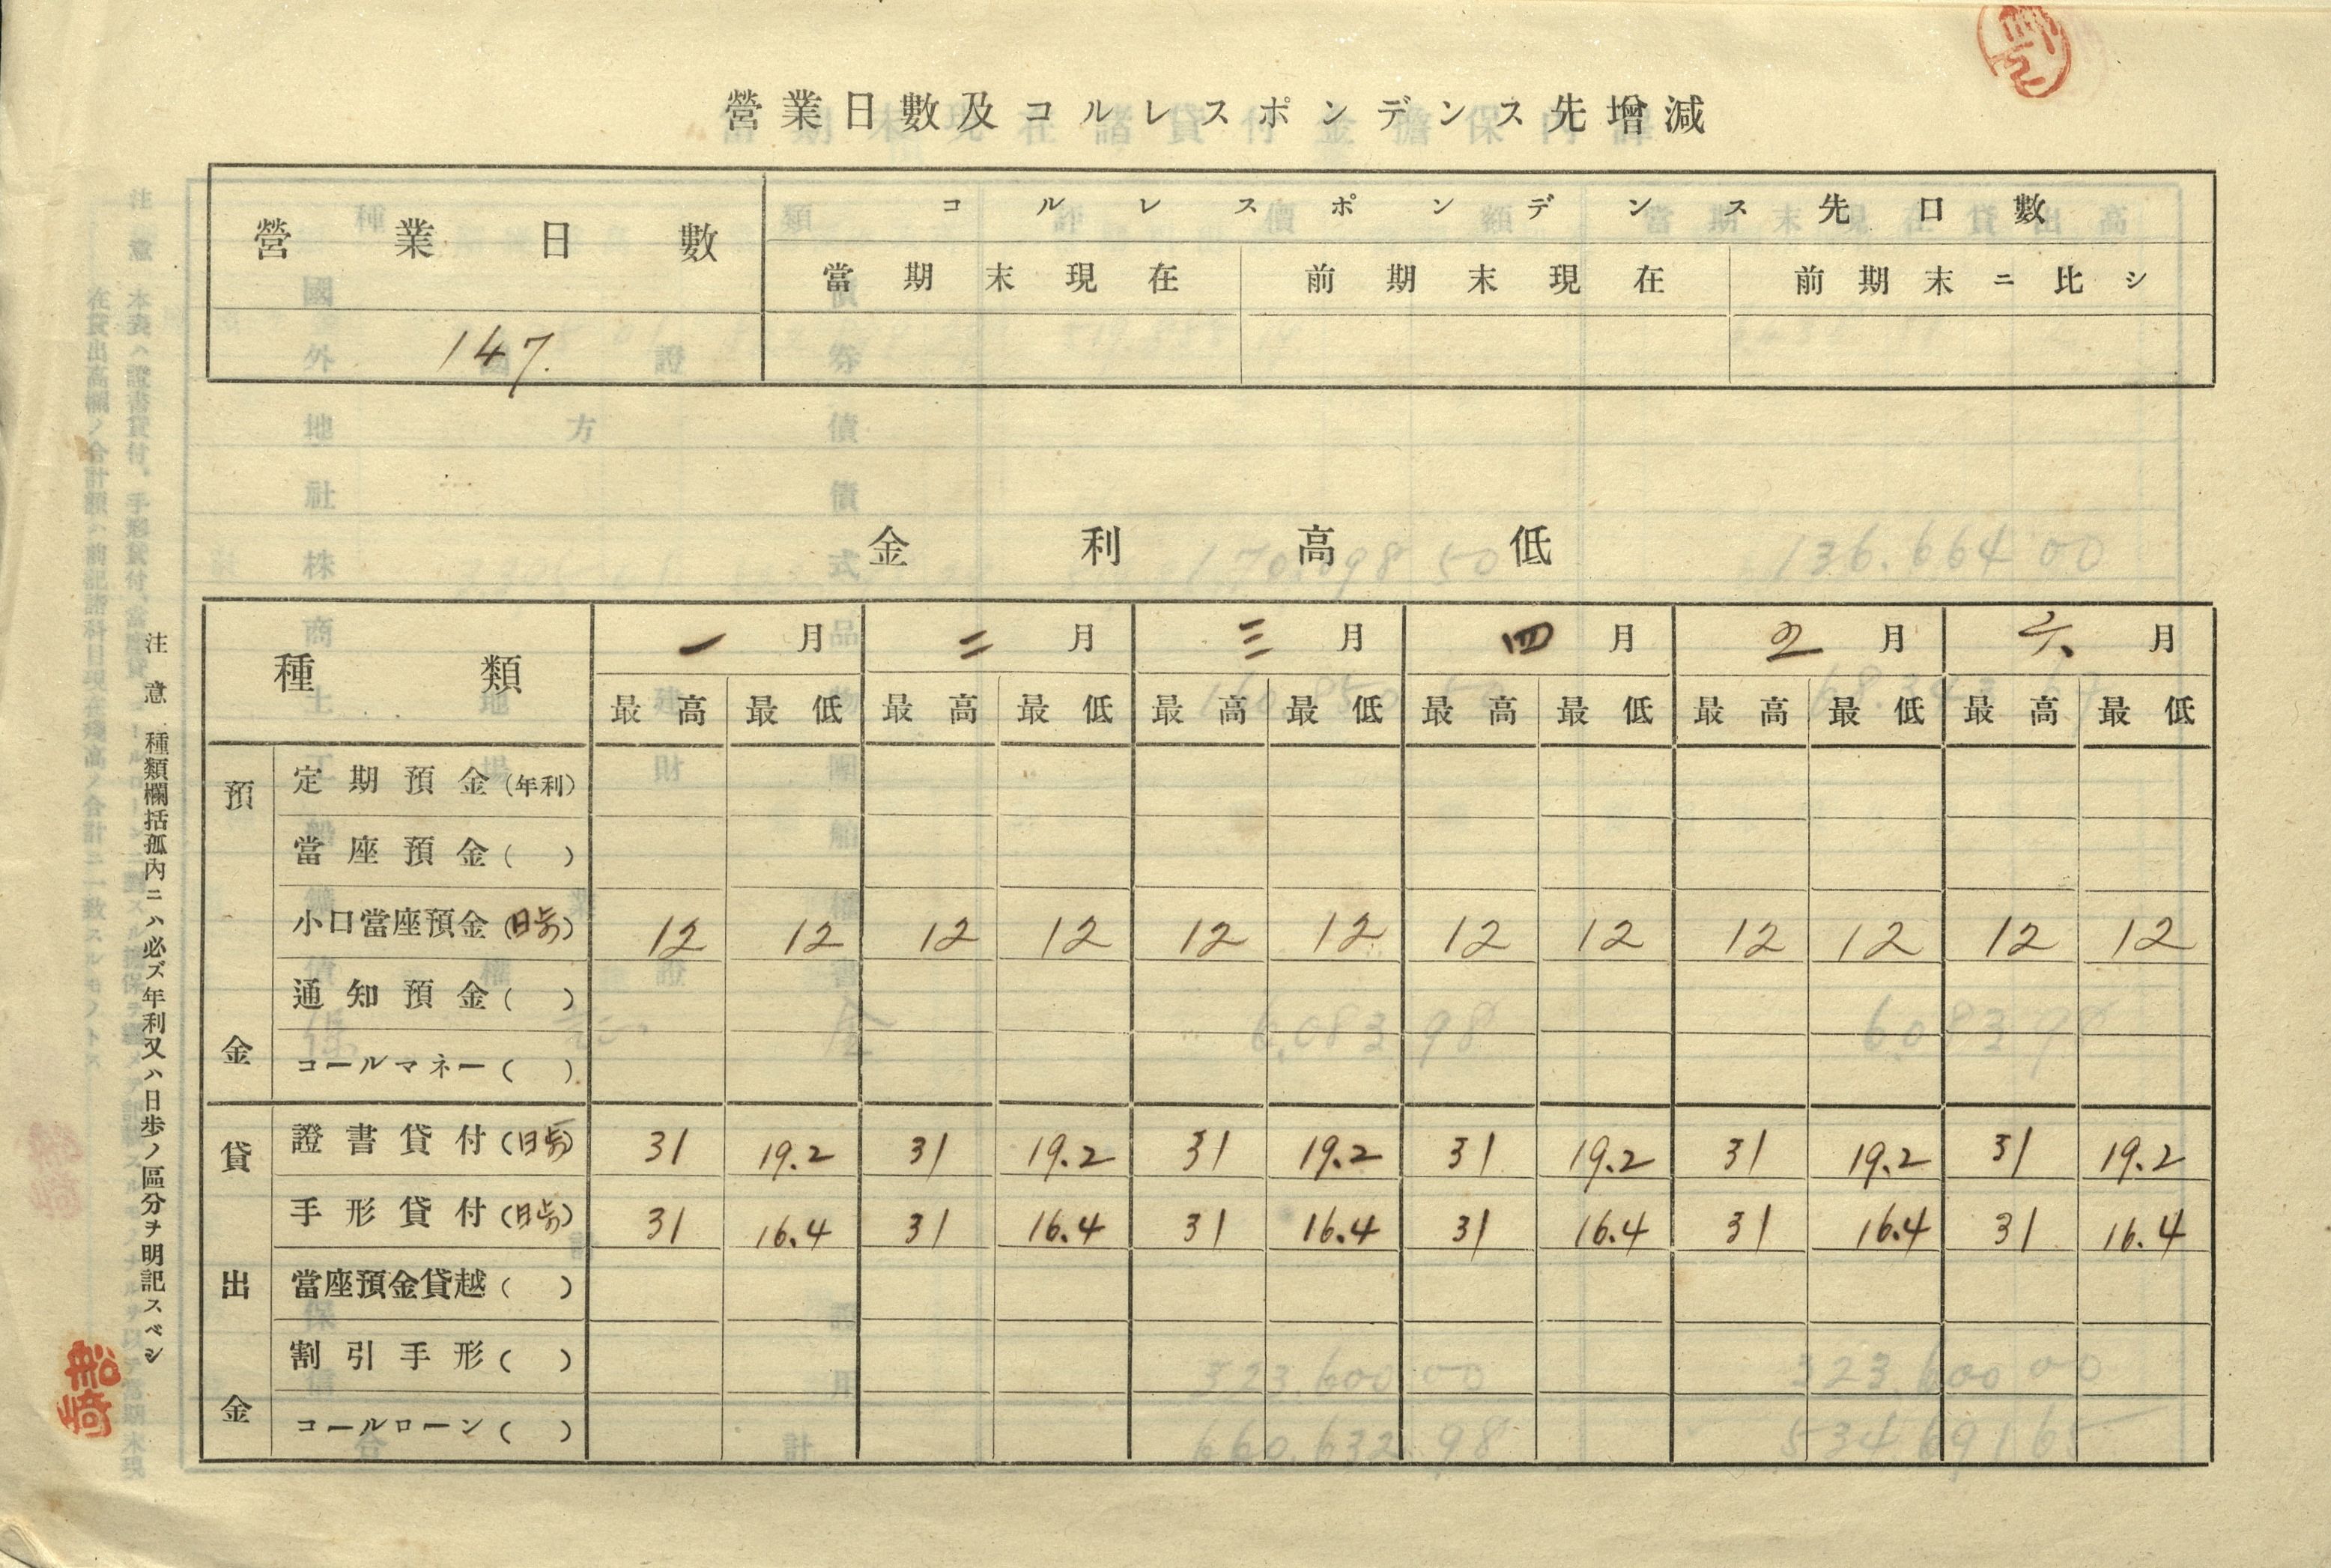 營業日數及コルレスポンデンス先增減
營業日數 コルレスポンデンス先口數
當期末現在 前期末現在 前期末ニ比シ
147.
金利高低
種類 一月 二月 三月 四月 五月 六月
最高 最低 最高 最低 最高 最低 最高 最低 最高 最低 最高 最低
預金
定期預金(年利)
當座預金( )
小口當座預金(日歩) 12 12 12 12 12 12 12 12 12 12 12 12
通知預金( )
コールマネー( )
貸出金
證書貸付(日歩) 31 19.2 31 19.2 31 19.2 31 19.2 31 19.2 31 19.2
手形貸付(日歩) 31 16.4 31 16.4 31 16.4 31 16.4 31 16.4 31 16.4
當座預金貸越( )
割引手形( )
コールローン( )
注意 種類欄括孤內ニハ必ズ年利又ハ日歩ノ區分ヲ明記スベシ
船崎